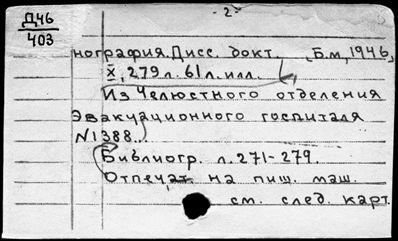 Д46
403
- 2 -
нография. Дисс. докт. Б.м, 1946,
X, 279 л. 61 л. илл.
Из Челюстного отделения
Эвакуационного госпиталя
N1388...
Библиогр. л. 271-279.
Отпечат. на пиш. маш.
см. след. карт.